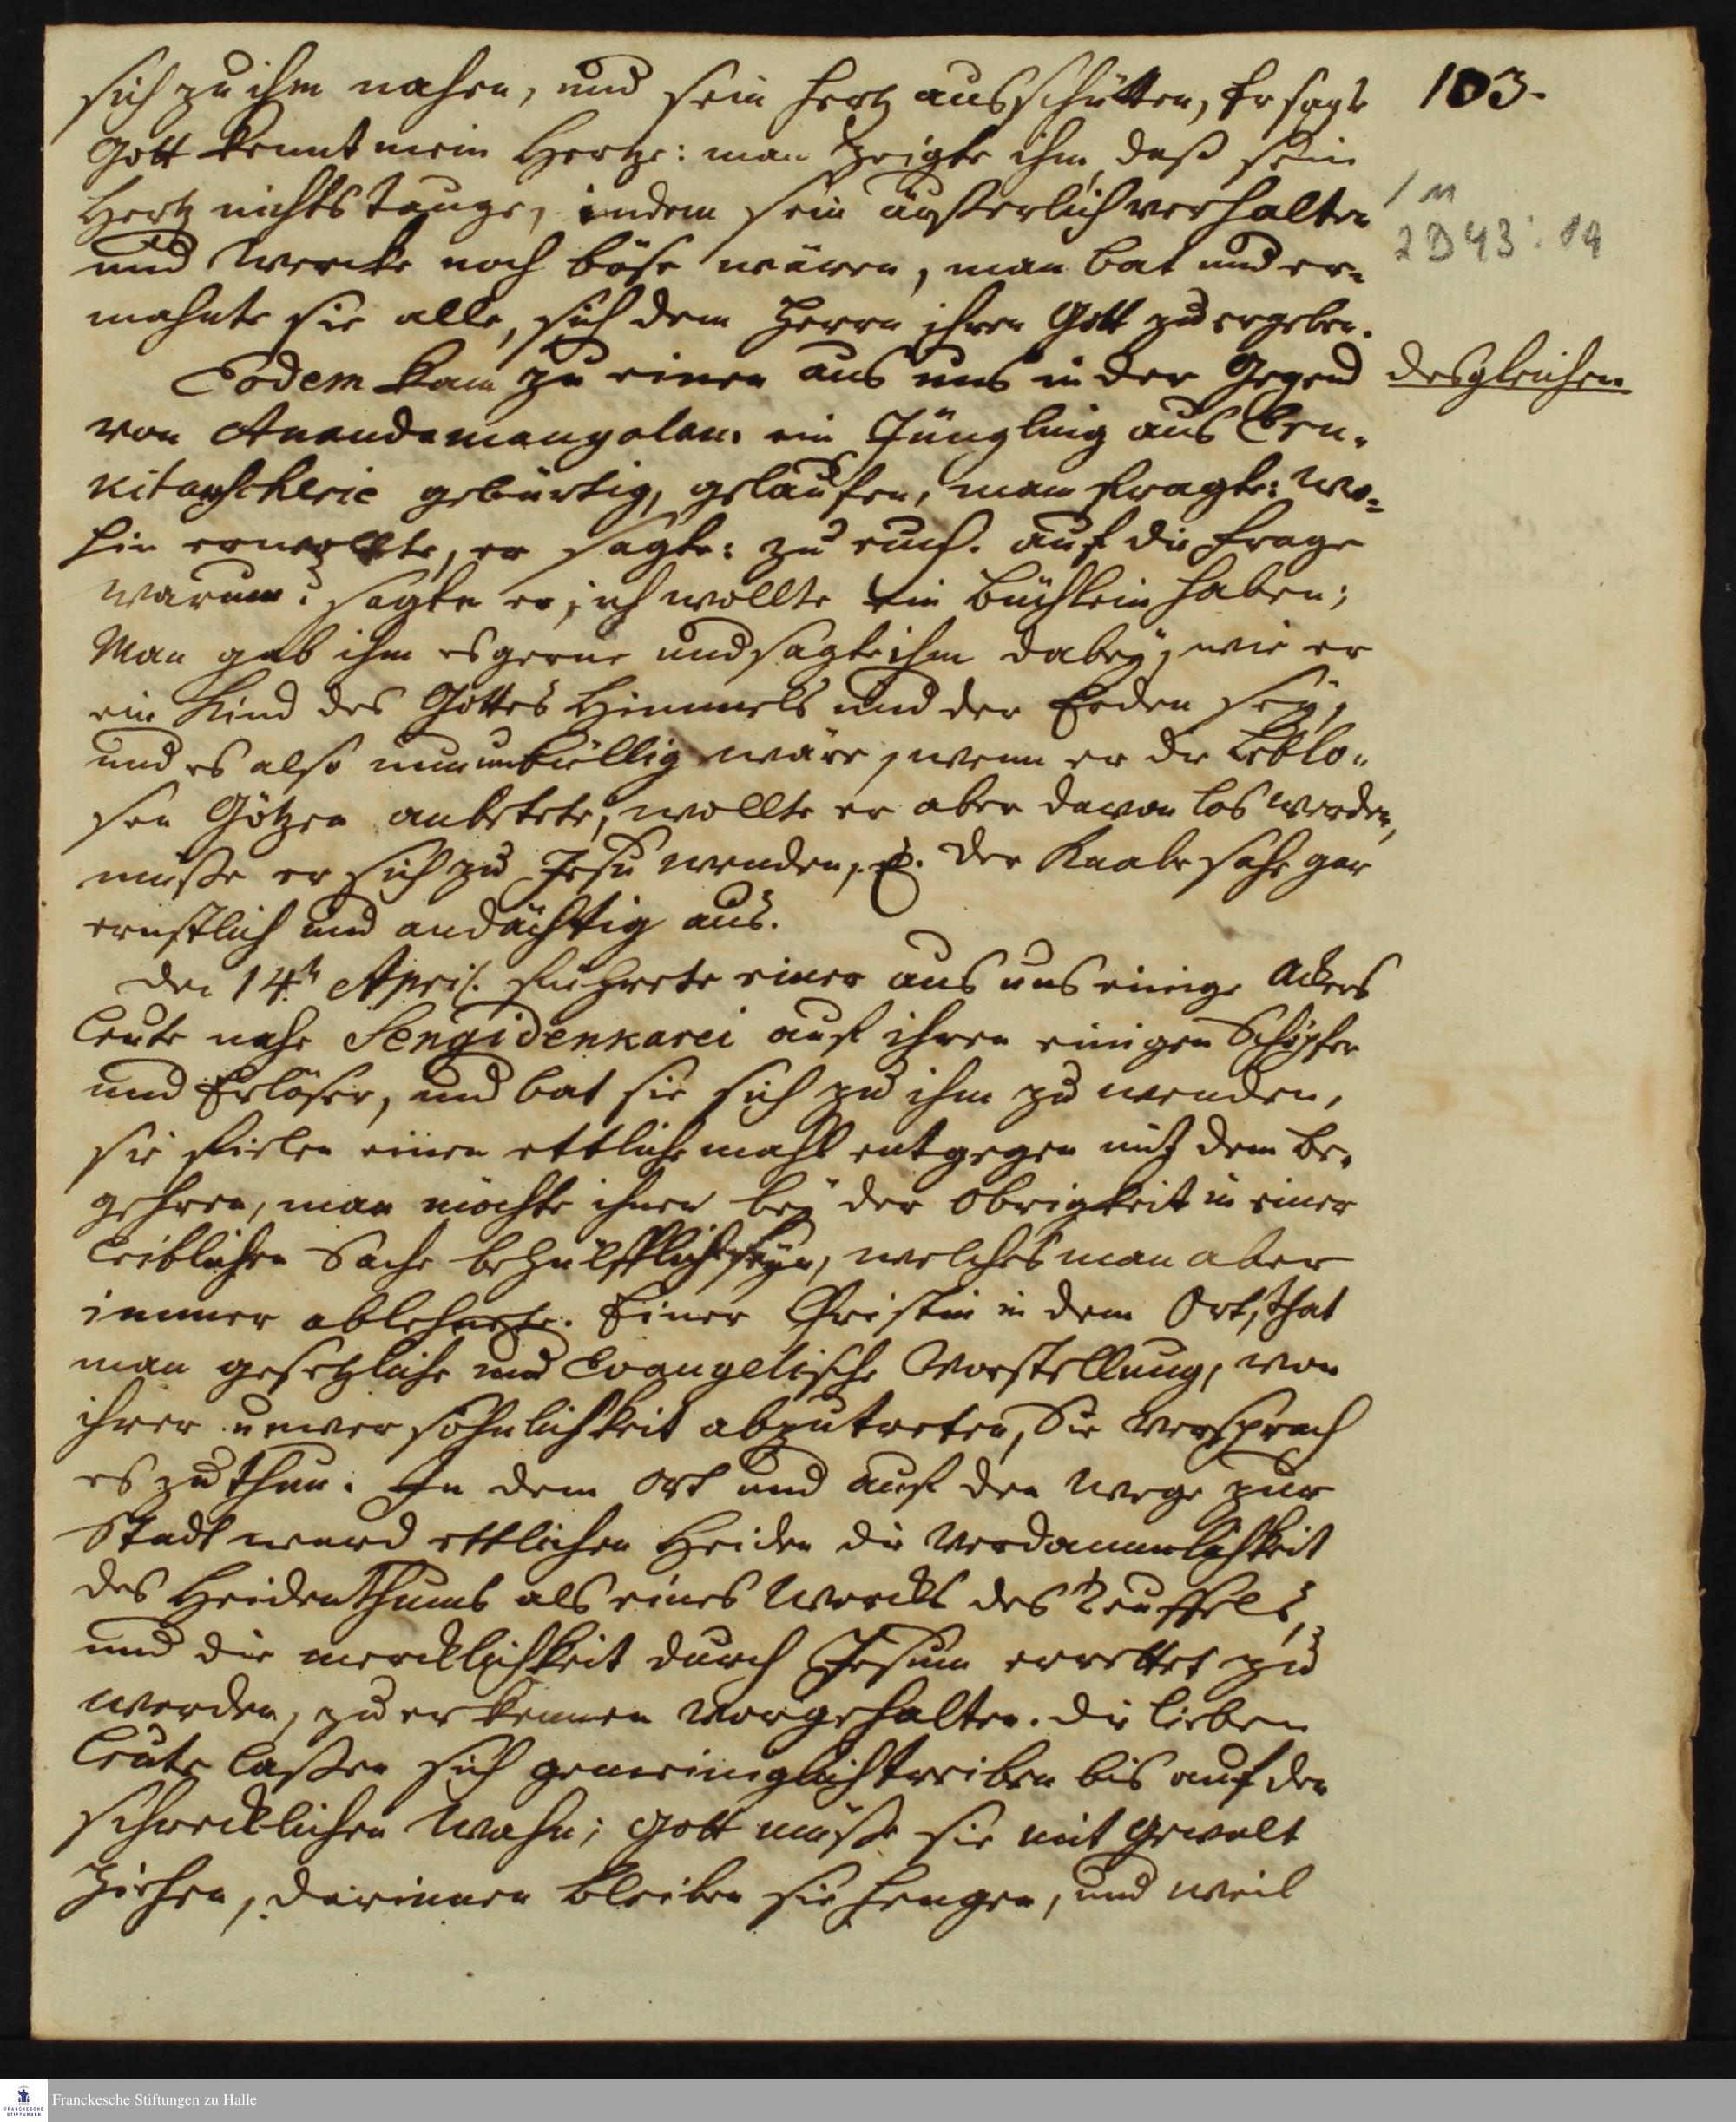 sich zu ihm nahen, und sein Hertz ausschütten, Er sagte
103.
Gott kennt mein Hertze: man zeigte ihm, daß sein
Hertz nichts tauge, indem sein äußerlich verhalten
1 M
2 D 43 : 14
und Wercke noch böse wären, man bat und er-
mahnte sie alle, sich dem Herrn ihren Gott zu ergeben.
Eodem kam zu einen aus uns in der Gegend
desgleichen
von Anandamangalam ein Jüngling aus Cen-
kitanscherie gebürtig, gelauffen, man fragte: wo-
hin er wollte, er sagte: zu euch. auf die frage
warum? sagte er, ich wollte ein Büchlein haben;
Man gab ihm es gerne und sagte ihm dabey, wie er
ein Kind des Gottes Himmels und der Erden sey,
und es also nun unbillig wäre, wenn er die Leblo-
sen Götzen anbetete; wollte er aber davon los werden,
müsse er sich zu Jesu wenden, p. Der Knabe sahe gar
ernstlich und andächtig aus.
Den 14.ten April. führete einer aus uns einige Ackers
Leute nahe Sengidenkarei auf ihren einigen Schöpfer
und Erlöser, und bat sie sich zu ihm zu wenden,
sie fielen einen ettliche mahl entgegen mit dem Be-
gehren, man möchte ihnen bey der Obrigkeit in einer
Leiblichen Sache behülfflich seyn, welches man aber
immer ablehnete. Einer Christin in dem Ort, that
man gesetzliche und Evangelische Vorstellung, von
ihrer unversöhnlichkeit abzutreten, Sie versprach
es zu thun. In dem Ort und auf den Wege zur
Stadt ward ettlichen Heiden die Verdammlichkeit
des Heidenthums als eines Wercks des Teuffels,
und die mercklichkeit durch Jesum errettet zu
werden, zu erkennen vorgehalten. Die lieben
Leute lassen sich gemeiniglich treiben bis auf den
schrecklichen Wahn; Gott müsse sie mit Gewalt
ziehen, darinnen bleiben sie hengen, und weil
FRANCKESCHE STIFTUNGEN
Franckesche Stiftungen zu Halle